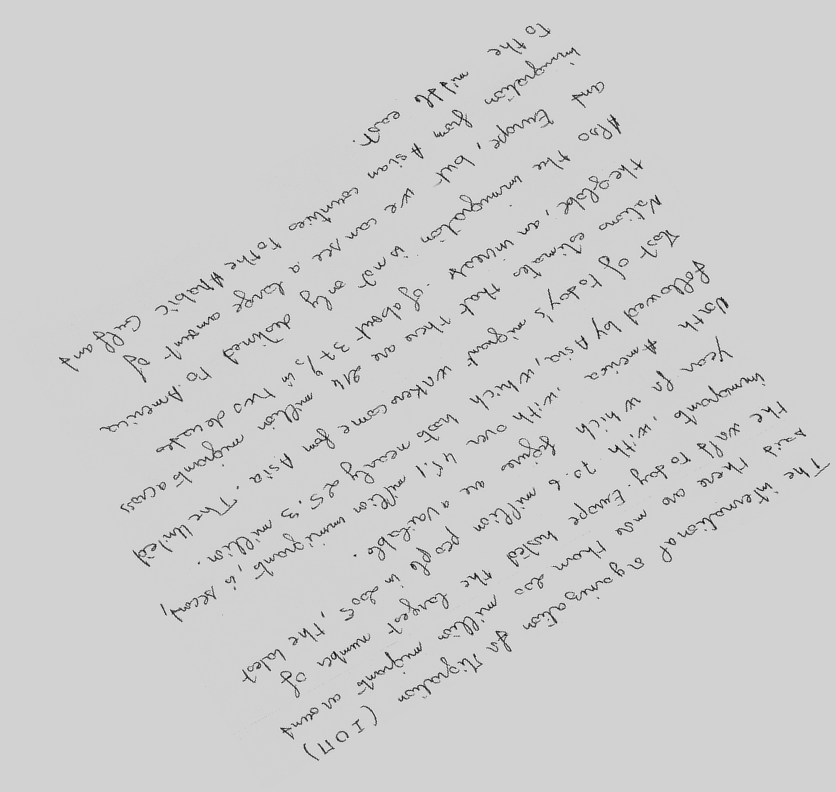 The international organisation for Migration (IOM)
said there are more than 200 million migrants around
the world today. Europe hosted the largest number of
immigrants, with 70.6 million people in 2005, the latest
year for which figure are available.
North America, with over 45.1 million immigrants, is second,
followed by Asia, which hosts nearly 25.3 million.
Most of today's migrant workers come from Asia. The United
Nations estimates that there are 214 million migrants across
the globe, an increase of about 37% in two decades
Also the immigration is not only destined to America
and Europe, but we can see a large amount of
immigration from Asian countries to the Arabic Gulf and
to the middle east.